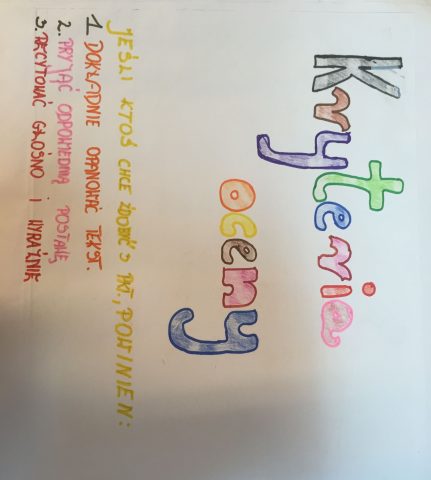 Kryteria
oceny
JEŚLI KTOŚ CHCE ZDOBYĆ 3 PKT., POWINIEN:
1. DOKŁADNIE OPANOWAĆ TEKST.
2. PRYJĄĆ ODPOWIEDNIĄ POSTAWĘ
3. RECYTOWAĆ GŁOŚNO I WYRAŹNIE